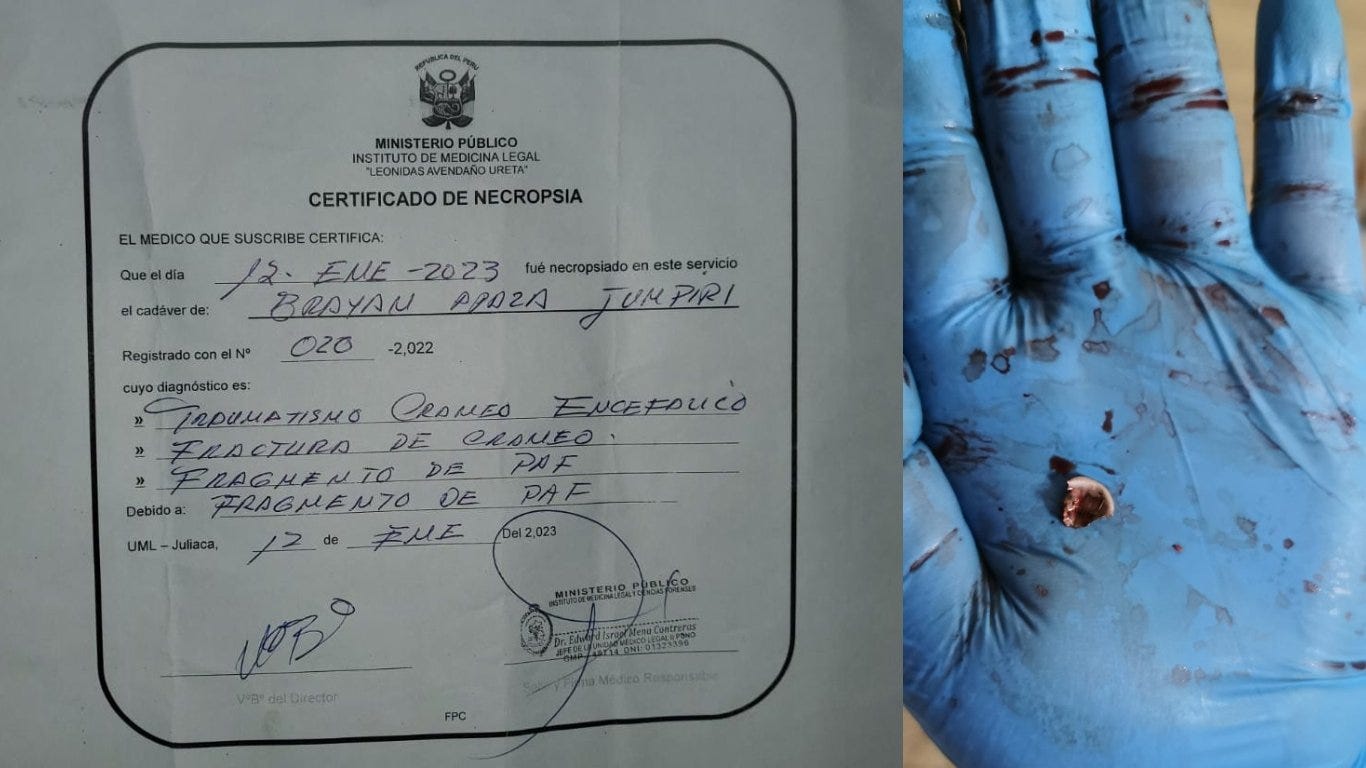 REPUBLICA DEL PERU
MINISTERIO PÚBLICO
INSTITUTO DE MEDICINA LEGAL
"LEONIDAS AVENDAÑO URETA"
CERTIFICADO DE NECROPSIA
EL MEDICO QUE SUSCRIBE CERTIFICA:
Que el día 12. ENE -2023 fué necropsiado en este servicio
el cadáver de: BRAYAN APAZA JUMPIRI
Registrado con el Nº 020 -2,022
cuyo diagnóstico es:
» TRAUMATISMO CRANEO ENCEFALICO
» FRACTURA DE CRANEO.
» FRAGMENTO DE PAF
Debido a: FRAGMENTO DE PAF
UML – Juliaca, 12 de ENE Del 2,023
VºBº
MINISTERIO PÚBLICO
INSTITUTO DE MEDICINA LEGAL Y CIENCIAS FORENSES
Dr. Edward Israel Mena Contreras
JEFE DE LA UNIDAD MEDICO LEGAL II PUNO
DNI: 01323396
VºBº del Director
Sello y Firma Médico Responsable
FPC